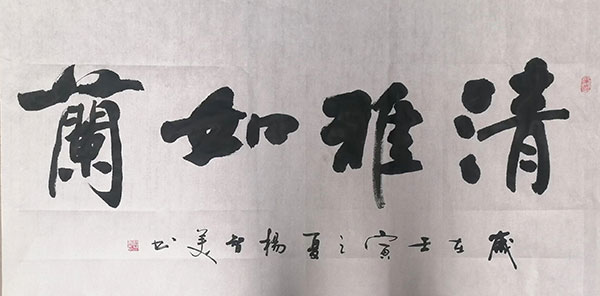 清雅如蘭
歲在壬寅之夏楊智美书